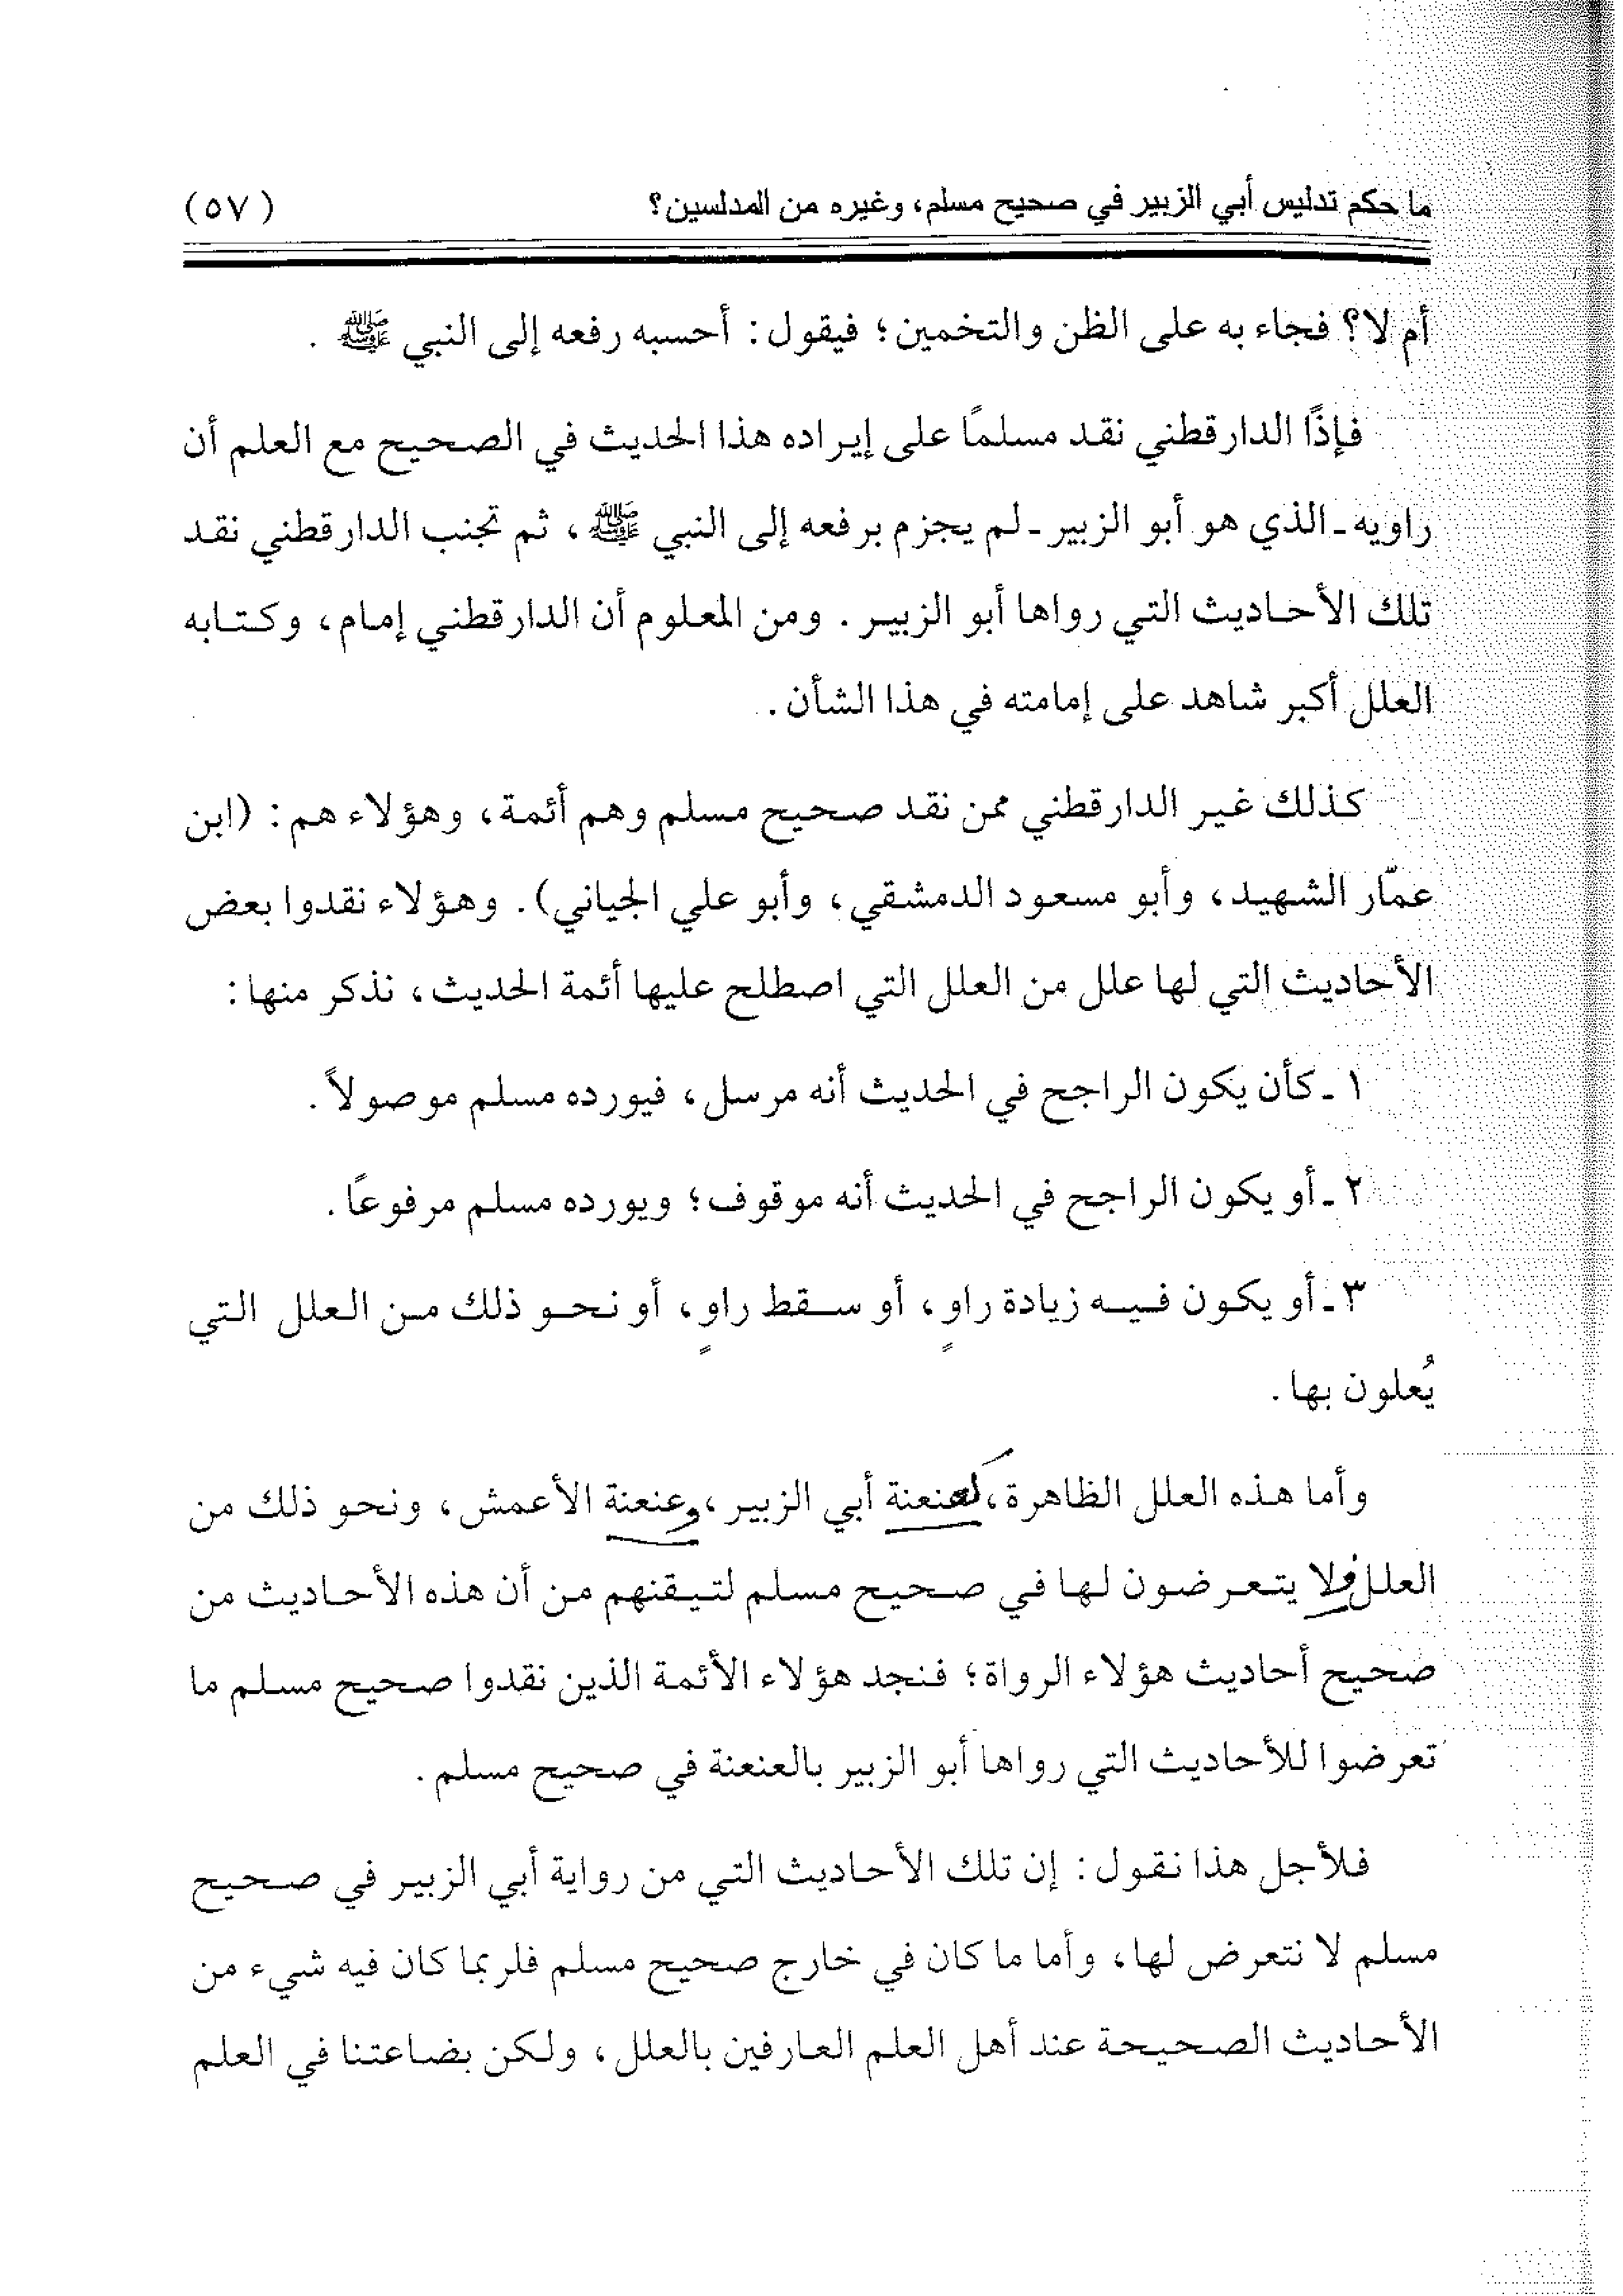 ما حكم تدليس أبي الزبير في صحيح مسلم، وغيره من المدلسين؟ (٥٧)
أم لا؟ فجاء به على الظن والتخمين؛ فيقول: أحسبه رفعه إلى النبي ﷺ .
فإذًا الدارقطني نقد مسلمًا على إيراده هذا الحديث في الصحيح مع العلم أن
راويه ـ الذي هو أبو الزبير ـ لم يجزم برفعه إلى النبي ﷺ، ثم تجنب الدارقطني نقد
تلك الأحاديث التي رواها أبو الزبير. ومن المعلوم أن الدارقطني إمام، وكتابه
العلل أكبر شاهد على إمامته في هذا الشأن.
كذلك غير الدارقطني ممن نقد صحيح مسلم وهم أئمة، وهؤلاء هم: (ابن
عمّار الشهيد، وأبو مسعود الدمشقي، وأبو علي الجياني). وهؤلاء نقدوا بعض
الأحاديث التي لها علل من العلل التي اصطلح عليها أئمة الحديث، نذكر منها:
١ ـ كأن يكون الراجح في الحديث أنه مرسل، فيورده مسلم موصولاً.
٢ ـ أو يكون الراجح في الحديث أنه موقوف؛ ويورده مسلم مرفوعًا.
٣ ـ أو يكون فيه زيادة راوٍ، أو سقط راوٍ، أو نحو ذلك من العلل التي
يُعلون بها.
وأما هذه العلل الظاهرة، كعنعنة أبي الزبير، وعنعنة الأعمش، ونحو ذلك من
العلل فلا يتعرضون لها في صحيح مسلم لتيقنهم من أن هذه الأحاديث من
صحيح أحاديث هؤلاء الرواة؛ فنجد هؤلاء الأئمة الذين نقدوا صحيح مسلم ما
تعرضوا للأحاديث التي رواها أبو الزبير بالعنعنة في صحيح مسلم.
فلأجل هذا نقول: إن تلك الأحاديث التي من رواية أبي الزبير في صحيح
مسلم لا نتعرض لها، وأما ما كان في خارج صحيح مسلم فلربما كان فيه شيء من
الأحاديث الصحيحة عند أهل العلم العارفين بالعلل، ولكن بضاعتنا في العلم